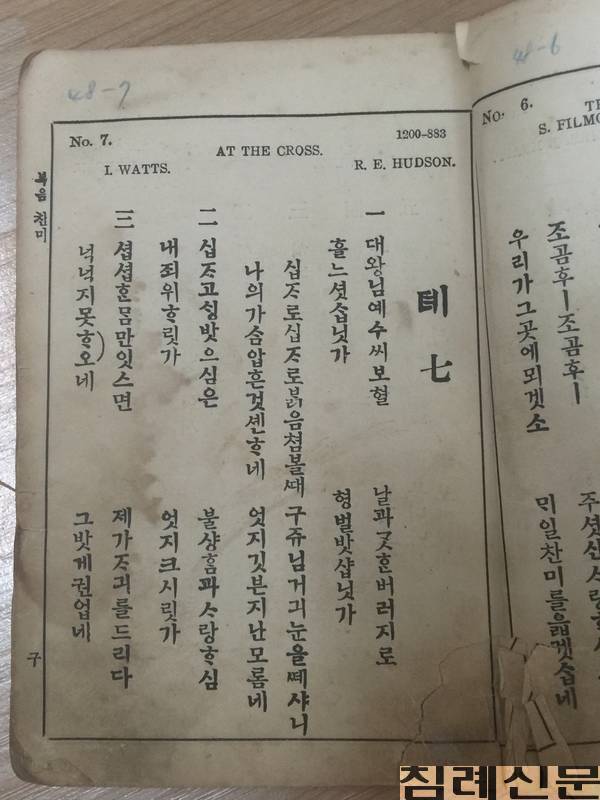 48-7
No. 7.
AT THE CROSS.
1200-883
I. WATTS.
R. E. HUDSON.
뎨七
一 대왕님예수씨보혈 날과ᄀᆞᆺᄒᆞᆫ버러지로
흘느셧ᄉᆞᆸ닛가 형벌밧샵닛가
십ᄌᆞ로십ᄌᆞ로붉음쳠볼ᄯᅢ 구쥬님거긔눈을ᄯᅦ샤니
나의가슴압흔것셴ᄒᆞ네 엇지깃븐지난모롬네
二 십ᄌᆞ고싱밧으심은 불샹ᄒᆞᆷ과ᄉᆞ랑ᄒᆞ심
내죄위ᄒᆞ릿가 엇지크시릿가
三 셥셥ᄒᆞᆫ몸만잇스면 제가ᄌᆞ긔를드리다
넉넉지못ᄒᆞ오네 그밧게권업네
복음 찬미
구
48-6
No. 6.
S. FILMO
조곰후ㅣ조곰후ㅣ
우리가그곳에뫼겟소 ᄆᆡ일찬미를읇겟ᄉᆞᆸ네
침례신문